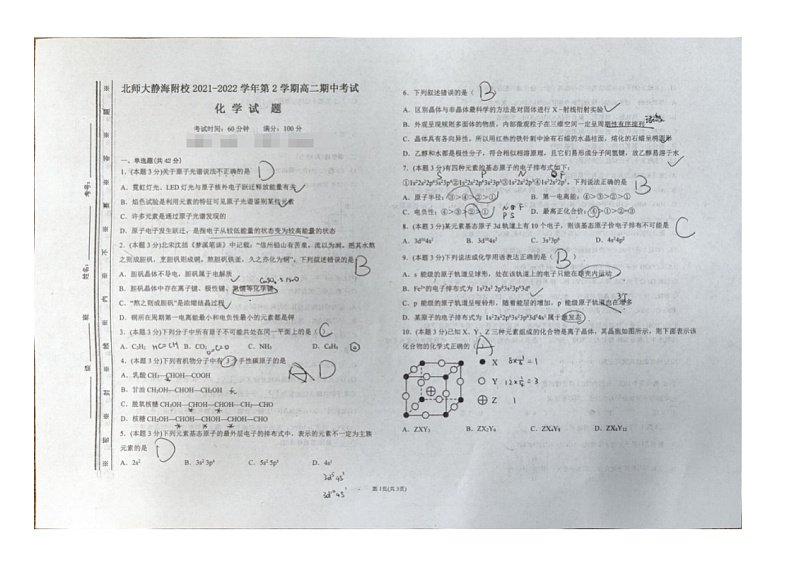 北师大静海附校 2021-2022 学年第 2 学期高二期中考试
化 学 试 题
考试时间：60 分钟 满分：100 分
一、单选题(共 42 分)
1. (本题 3 分)关于原子光谱说法不正确的是 D
A. 霓虹灯光、LED 灯光与原子核外电子跃迁释放能量有关
B. 焰色试验是利用元素的特征可见原子光谱鉴别某些元素
C. 许多元素是通过原子光谱发现的
D. 原子电子发生跃迁，是指电子从较低能量的状态变为较高能量的状态
2. (本题 3 分)北宋沈括《梦溪笔谈》中记载：“信州铅山有苦泉，流以为涧。挹其水熬
之则成胆矾，烹胆矾则成铜。熬胆矾铁釜，久之亦化为铜”。下列叙述错误的是 B
A. 胆矾晶体不导电，胆矾属于电解质
B. 胆矾晶体中存在离子键、极性键、氢键等化学键
C. “熬之则成胆矾”是浓缩结晶过程
D. 铜所在周期第一电离能最小和电负性最小的元素都是钾
3. (本题 3 分)下列分子中所有原子不可能共处在同一平面上的是 C
A. C₂H₂ B. CO₂ C. NH₃ D. C₆H₆
4. (本题 3 分)下列有机物分子中有 3 个手性碳原子的是 D
A. 乳酸 CH₃—CHOH—COOH
B. 甘油 CH₂OH—CHOH—CH₂OH
C. 脱氧核糖 CH₂OH—CHOH—CHOH—CH₂—CHO
D. 核糖 CH₂OH—CHOH—CHOH—CHOH—CHO
5. (本题 3 分)下列元素基态原子的最外层电子的排布式中，表示的元素不一定为主族
元素的是 D
A. 2s² B. 3s² 3p⁴ C. 5s² 5p² D. 4s¹
3d⁵ 4s¹
3d¹⁰ 4s¹
6. 下列叙述错误的是 B
A. 区别晶体与非晶体最科学的方法是对固体进行 X -射线衍射实验
B. 外观呈现规则多面体的物质，内部微观粒子在三维空间一定呈周期性有序排列
C. 晶体具有各向异性，所以用红热的铁针刺中涂有石蜡的水晶柱面，熔化的石蜡呈椭圆形
D. 乙醇和水都是极性分子，符合相似相溶原理，且它们易形成分子间氢键，故乙醇易溶于水
7. (本题 3 分)有四种元素的基态原子的电子排布式如下：
①1s²2s²2p⁶3s²3p⁴②1s²2s²2p⁶3s²3p³③1s²2s²2p³④1s²2s²2p⁵，下列说法正确的是 B
A. 原子半径：③>④>②>① B. 第一电离能：④>③>②>①
C. 电负性：④>③>②>① D. 最高正化合价：④>①>②=③
8. (本题 3 分)某元素基态原子 3d 轨道上有 10 个电子，则该基态原子价电子排布不可能是 C
A. 3d¹⁰4s¹ B. 3d¹⁰4s² C. 3s²3p⁶ D. 4s²4p²
9. (本题 3 分)下列说法或化学用语表达正确的是 B
A. s 能级的原子轨道呈球形，处在该轨道上的电子只能在球壳内运动
B. Fe²⁺的电子排布式为 1s²2s²2p⁶3s²3p⁶3d⁶
C. p 能级的原子轨道呈哑铃形，随着能层的增加，p 能级原子轨道也在增多
D. 某原子的电子排布式为 1s²2s²2p⁶3s²3p⁶3d⁵4s¹ 属于激发态
10. (本题 3 分)已知 X、Y、Z 三种元素组成的化合物是离子晶体，其晶胞如图所示，则下面表示该
化合物的化学式正确的 A
X 8×⅛=1
Y 12×¼=3
Z 1
A. ZXY₃ B. ZX₂Y₆ C. ZX₄Y₈ D. ZX₈Y₁₂
第 1页(共 3页)